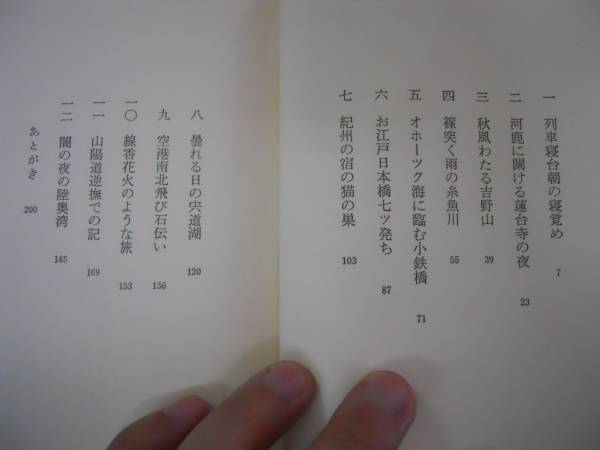 一 列車寝台朝の寝覚め 7
二 河鹿に闌ける蓮台寺の夜 23
三 秋風わたる吉野山 39
四 篠突く雨の糸魚川 55
五 オホーツク海に臨む小鉄橋 71
六 お江戸日本橋七ッ発ち 87
七 紀州の宿の猫の巣 103
八 曇れる日の宍道湖 120
九 空港南北飛び石伝い 136
一〇 線香花火のような旅 153
一一 山陽道逆撫での記 169
一二 闇の夜の陸奥湾 185
あとがき 200